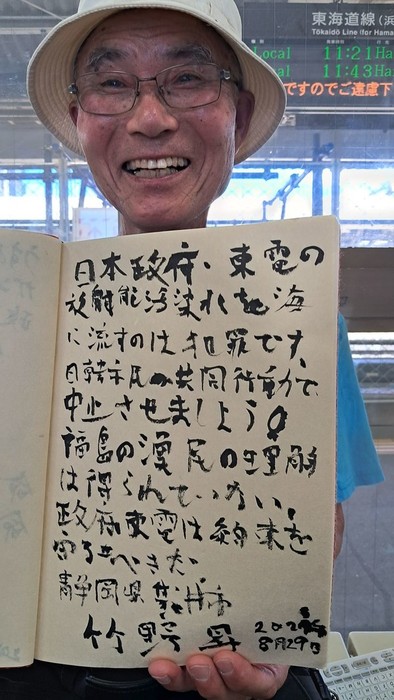 東海道線 (浜
Tōkaidō Line (for Hama
Local 11:21 Ha
al 11:43 Ha
ですのでご遠慮下
日本政府・東電の
放射能汚染水を海
に流すのは犯罪です
日韓市民の共同行動で
中止させましょう
福島の漁民の理解
は得られていない。
政府東電は約束を
守るべきだ
静岡県
竹野昇
8月29日